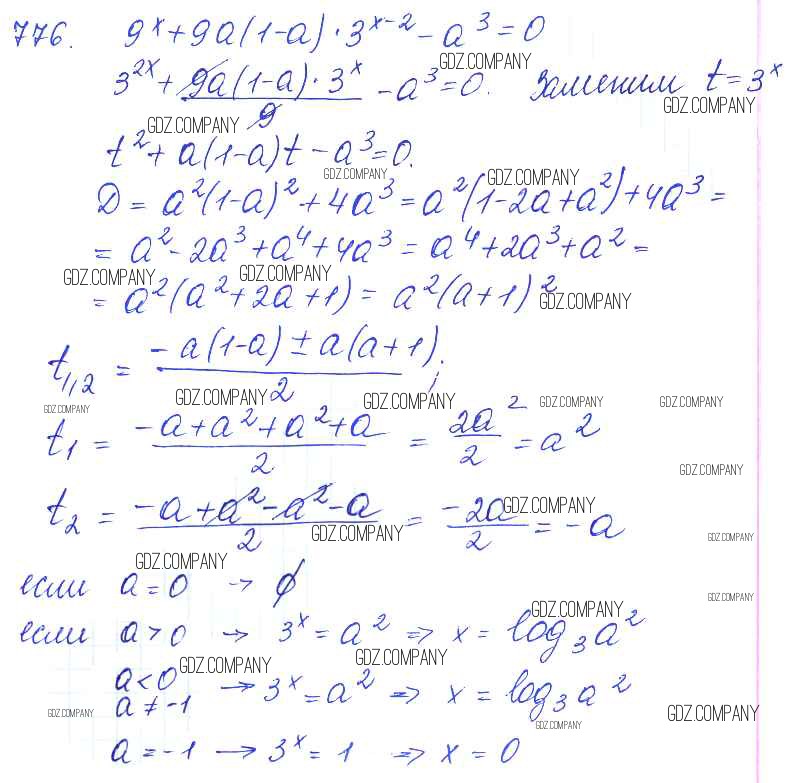 776. 9^x + 9a(1-a)·3^{x-2} - a^3 = 0
GDZ.COMPANY
3^{2x} + 9a(1-a)·3^x / 9 - a^3 = 0. Заменим t = 3^x
GDZ.COMPANY
GDZ.COMPANY
t^2 + a(1-a)t - a^3 = 0.
GDZ.COMPANY GDZ.COMPANY
D = a^2(1-a)^2 + 4a^3 = a^2(1-2a+a^2) + 4a^3 =
= a^2 - 2a^3 + a^4 + 4a^3 = a^4 + 2a^3 + a^2 =
GDZ.COMPANY GDZ.COMPANY
= a^2(a^2+2a+1) = a^2(a+1)^2 GDZ.COMPANY
t_{1,2} = -a(1-a) ± a(a+1) / 2;
GDZ.COMPANY GDZ.COMPANY
GDZ.COMPANY GDZ.COMPANY GDZ.COMPANY
t_1 = -a+a^2+a^2+a / 2 = 2a^2 / 2 = a^2
GDZ.COMPANY
t_2 = -a+a^2-a^2-a / 2 = -2a / 2 = -a
GDZ.COMPANY
GDZ.COMPANY GDZ.COMPANY
GDZ.COMPANY
если a = 0 → ∅
GDZ.COMPANY
GDZ.COMPANY
если a > 0 → 3^x = a^2 ⇒ x = log_3 a^2
GDZ.COMPANY GDZ.COMPANY
a < 0
a ≠ -1 → 3^x = a^2 ⇒ x = log_3 a^2
GDZ.COMPANY GDZ.COMPANY
GDZ.COMPANY
a = -1 → 3^x = 1 ⇒ x = 0